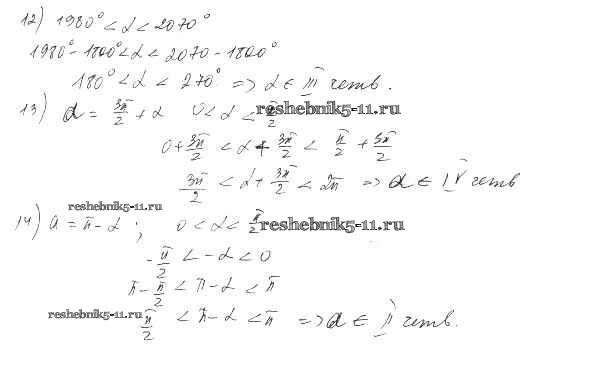 12) 1980° < α < 2070°
1980° - 1800° < α < 2070 - 1800°
180° < α < 270° => α ∈ III четв.
13) α = 3π/2 + α 0 < α < π/2 reshebnik5-11.ru
0 + 3π/2 < α + 3π/2 < π/2 + 3π/2
3π/2 < α + 3π/2 < 2π => α ∈ IV четв
reshebnik5-11.ru
14) a = π - α ; 0 < α < π/2 reshebnik5-11.ru
-π/2 < -α < 0
π - π/2 < π - α < π
reshebnik5-11.ru π/2 < π - α < π => α ∈ II четв.